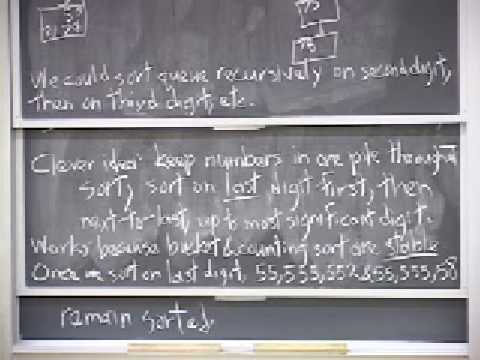 We could sort queue recursively on second digit,
then on third digit, etc.
Clever idea: keep numbers in one pile throughout
sort; sort on last digit first, then
next-to-last, up to most significant digit.
Works because bucket & counting sort are stable
Once we sort on last digit, 55,555,55 & 55,555,58
remain sorted.